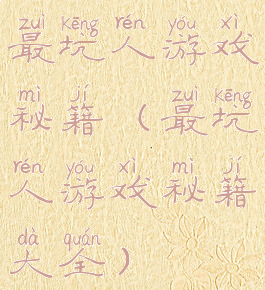 zuì kēng rén yóu xì
最坑人游戏
mì jí zuì kēng
秘籍（最坑
rén yóu xì mì jí
人游戏秘籍
dà quán
大全）